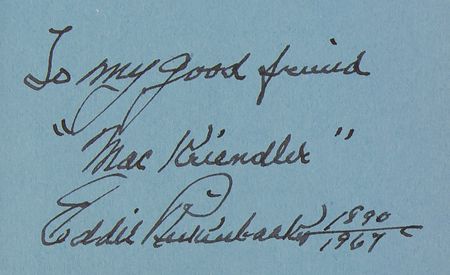 To my good friend
"Mac Kriendler"
Eddie Rickenbacker 1890
1967